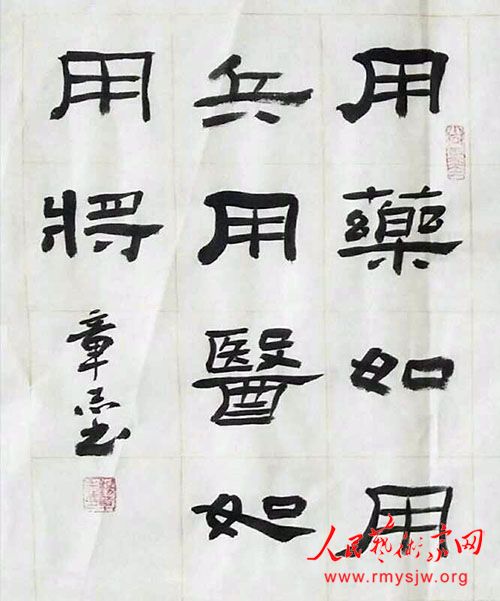 用藥如用
兵用醫如
用將
章志书
人民艺术家网
www.rmysjw.org